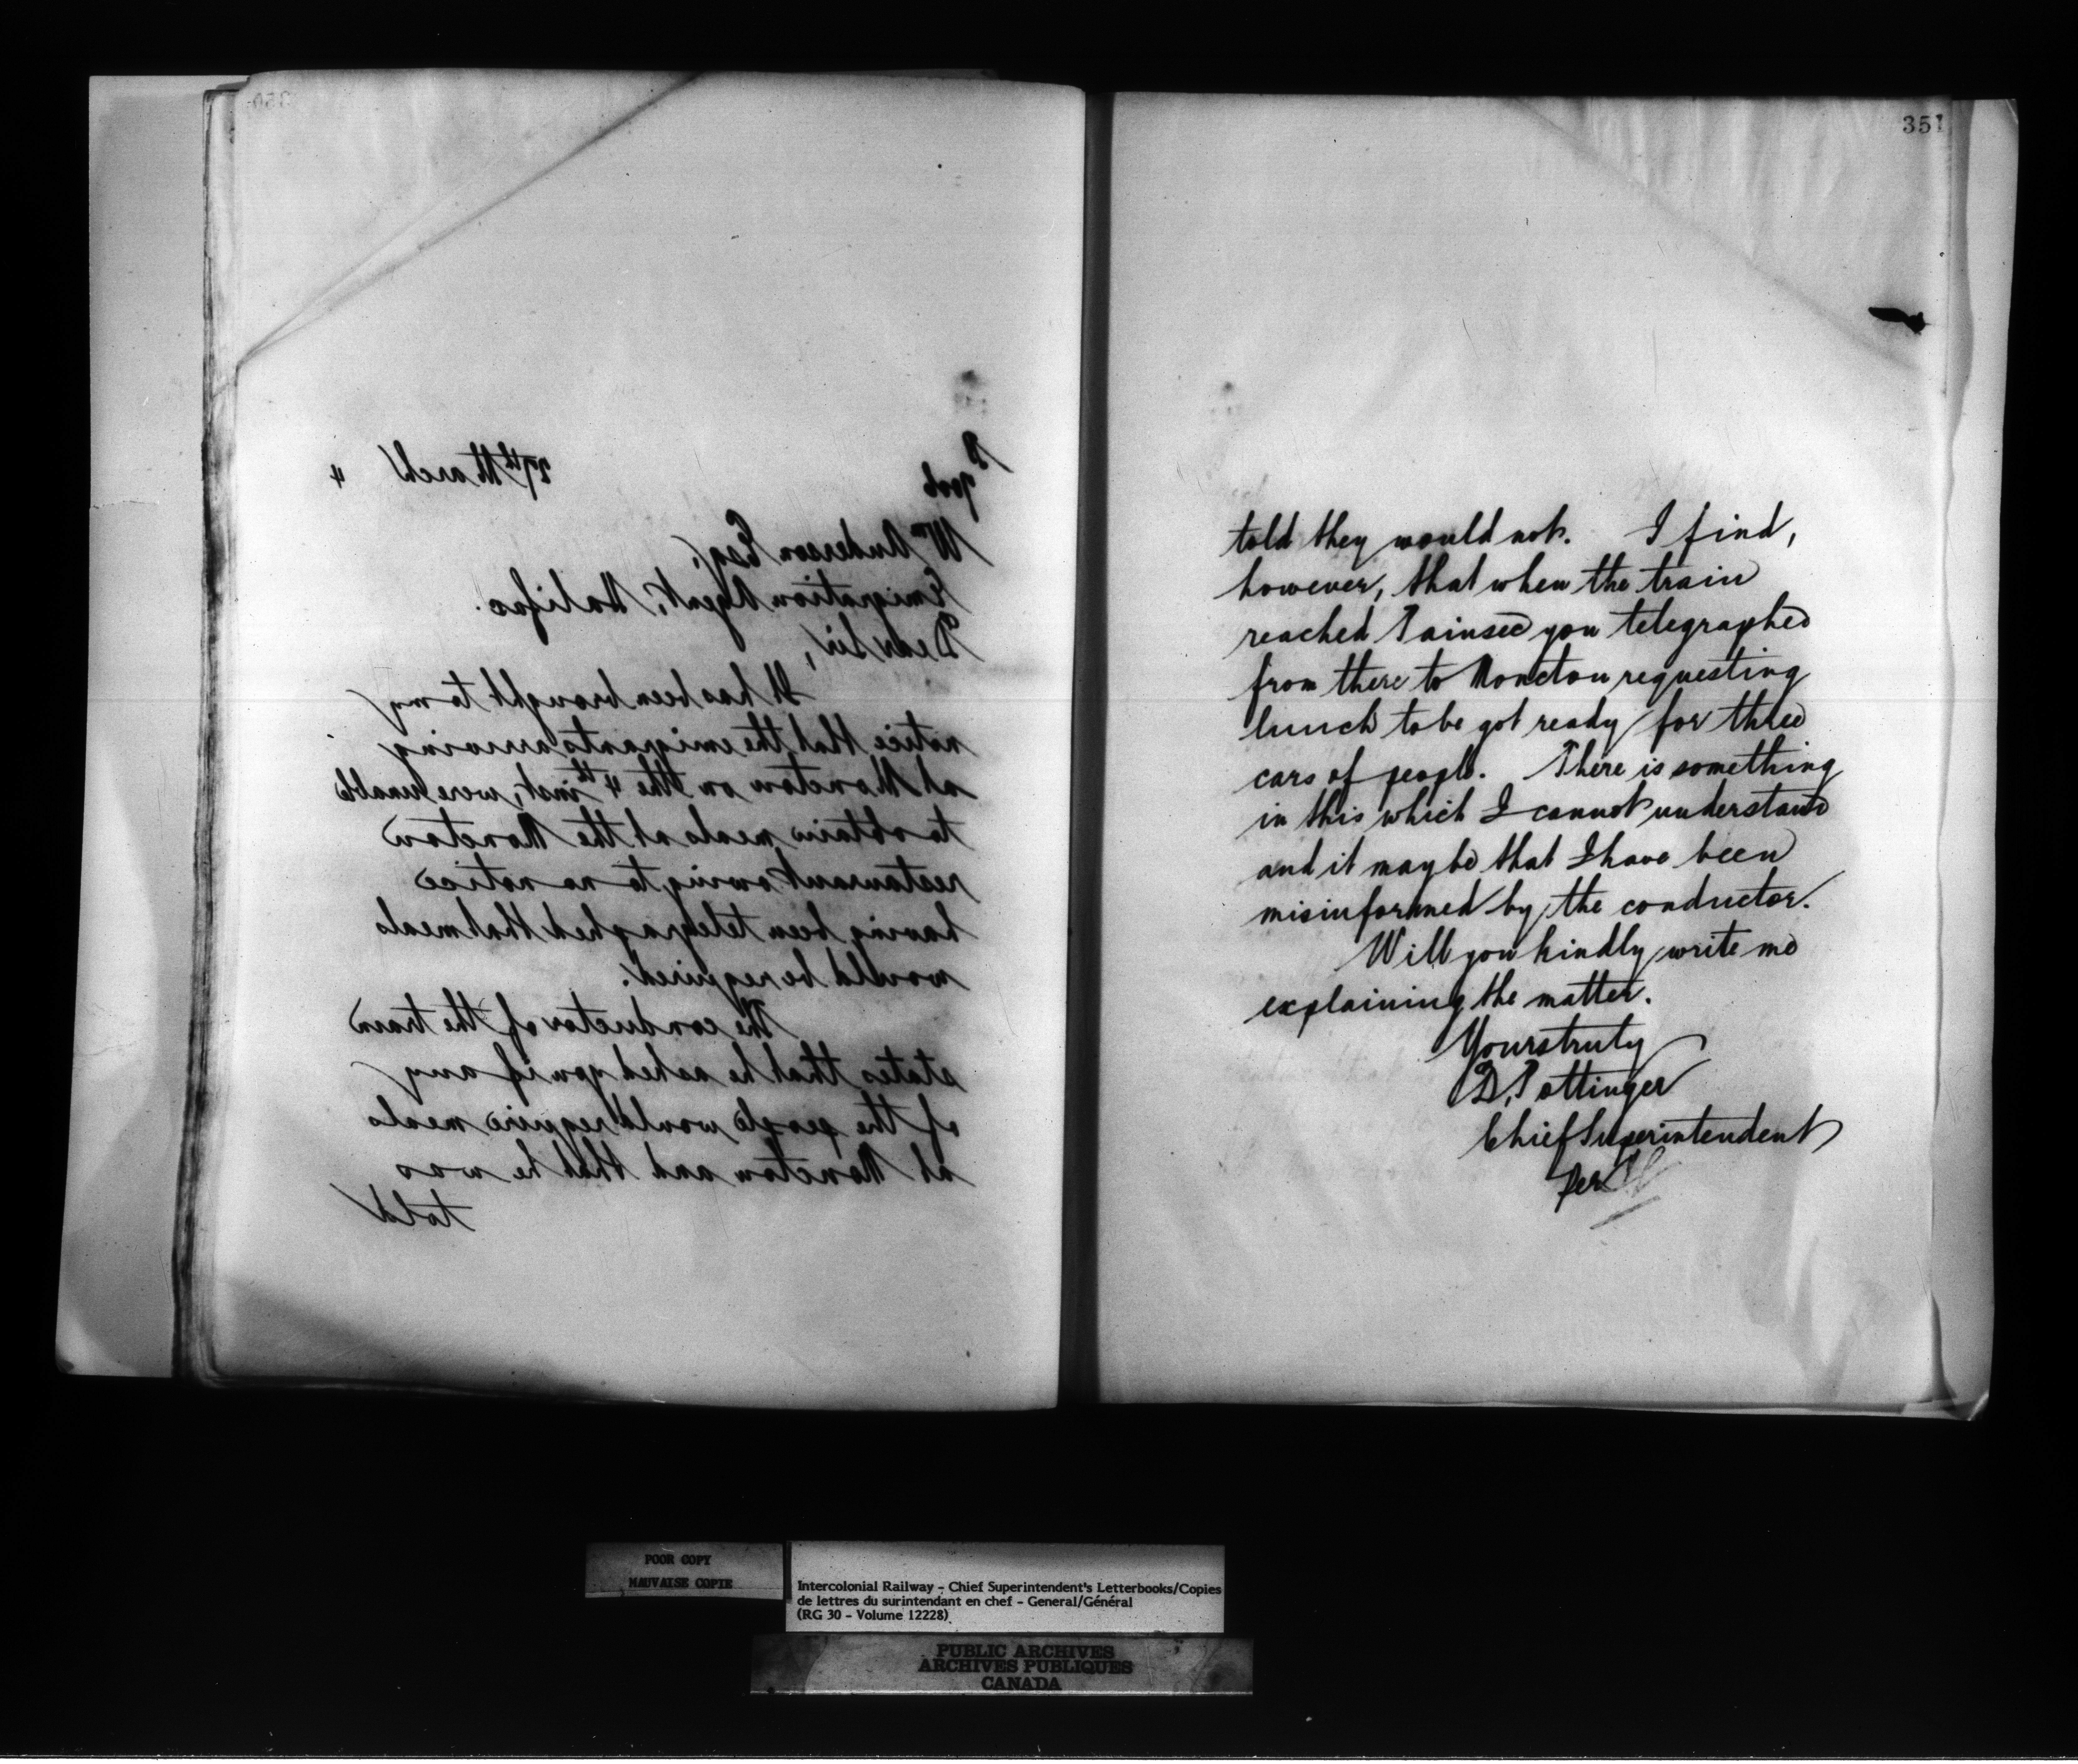 350
27th March 4
9006
Wm Anderson Esq,
Emigration Agent, Halifax.
Dear Sir,
It has been brought to my
notice that the emigrants arriving
at Moncton on the 4th inst, were unable
to obtain meals at the Moncton
restaurant owing to no notice
having been telegraphed that meals
would be required.
The conductor of the train
states that he asked you if any
of the people would require meals
at Moncton and that he was
told
351
told they would not. I find,
however, that when the train
reached Painsec you telegraphed
from there to Moncton requesting
lunch to be got ready for three
cars of people. There is something
in this which I cannot understand
and it may be that I have been
misinformed by the conductor.
Will you kindly write me
explaining the matter.
Yours truly
D. Pottinger
Chief Superintendent
Per
POOR COPY
MAUVAISE COPIE
Intercolonial Railway - Chief Superintendent's Letterbooks/Copies
de lettres du surintendant en chef - General/Général
(RG 30 - Volume 12228)
PUBLIC ARCHIVES
ARCHIVES PUBLIQUES
CANADA